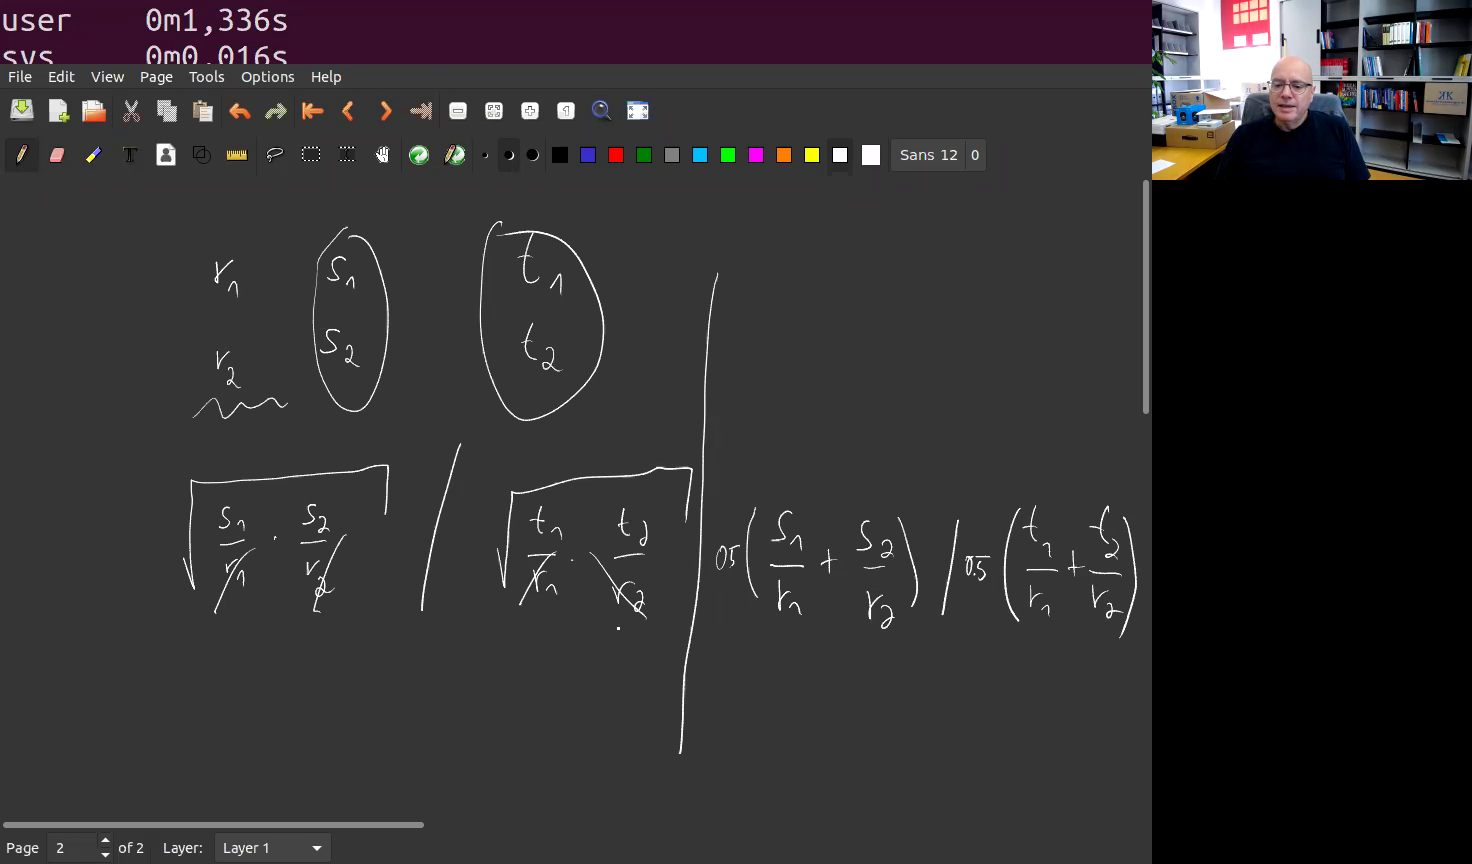 user 0m1,336s
sys 0m0,016s
File Edit View Page Tools Options Help
Sans 12 0
r₁ s₁ t₁
r₂ s₂ t₂
√(s₁/r₁ · s₂/r₂) / √(t₁/r₁ · t₂/r₂)
05 (s₁/r₁ + s₂/r₂) / 0.5 (t₁/r₁ + t₂/r₂)
Page 2 of 2 Layer: Layer 1